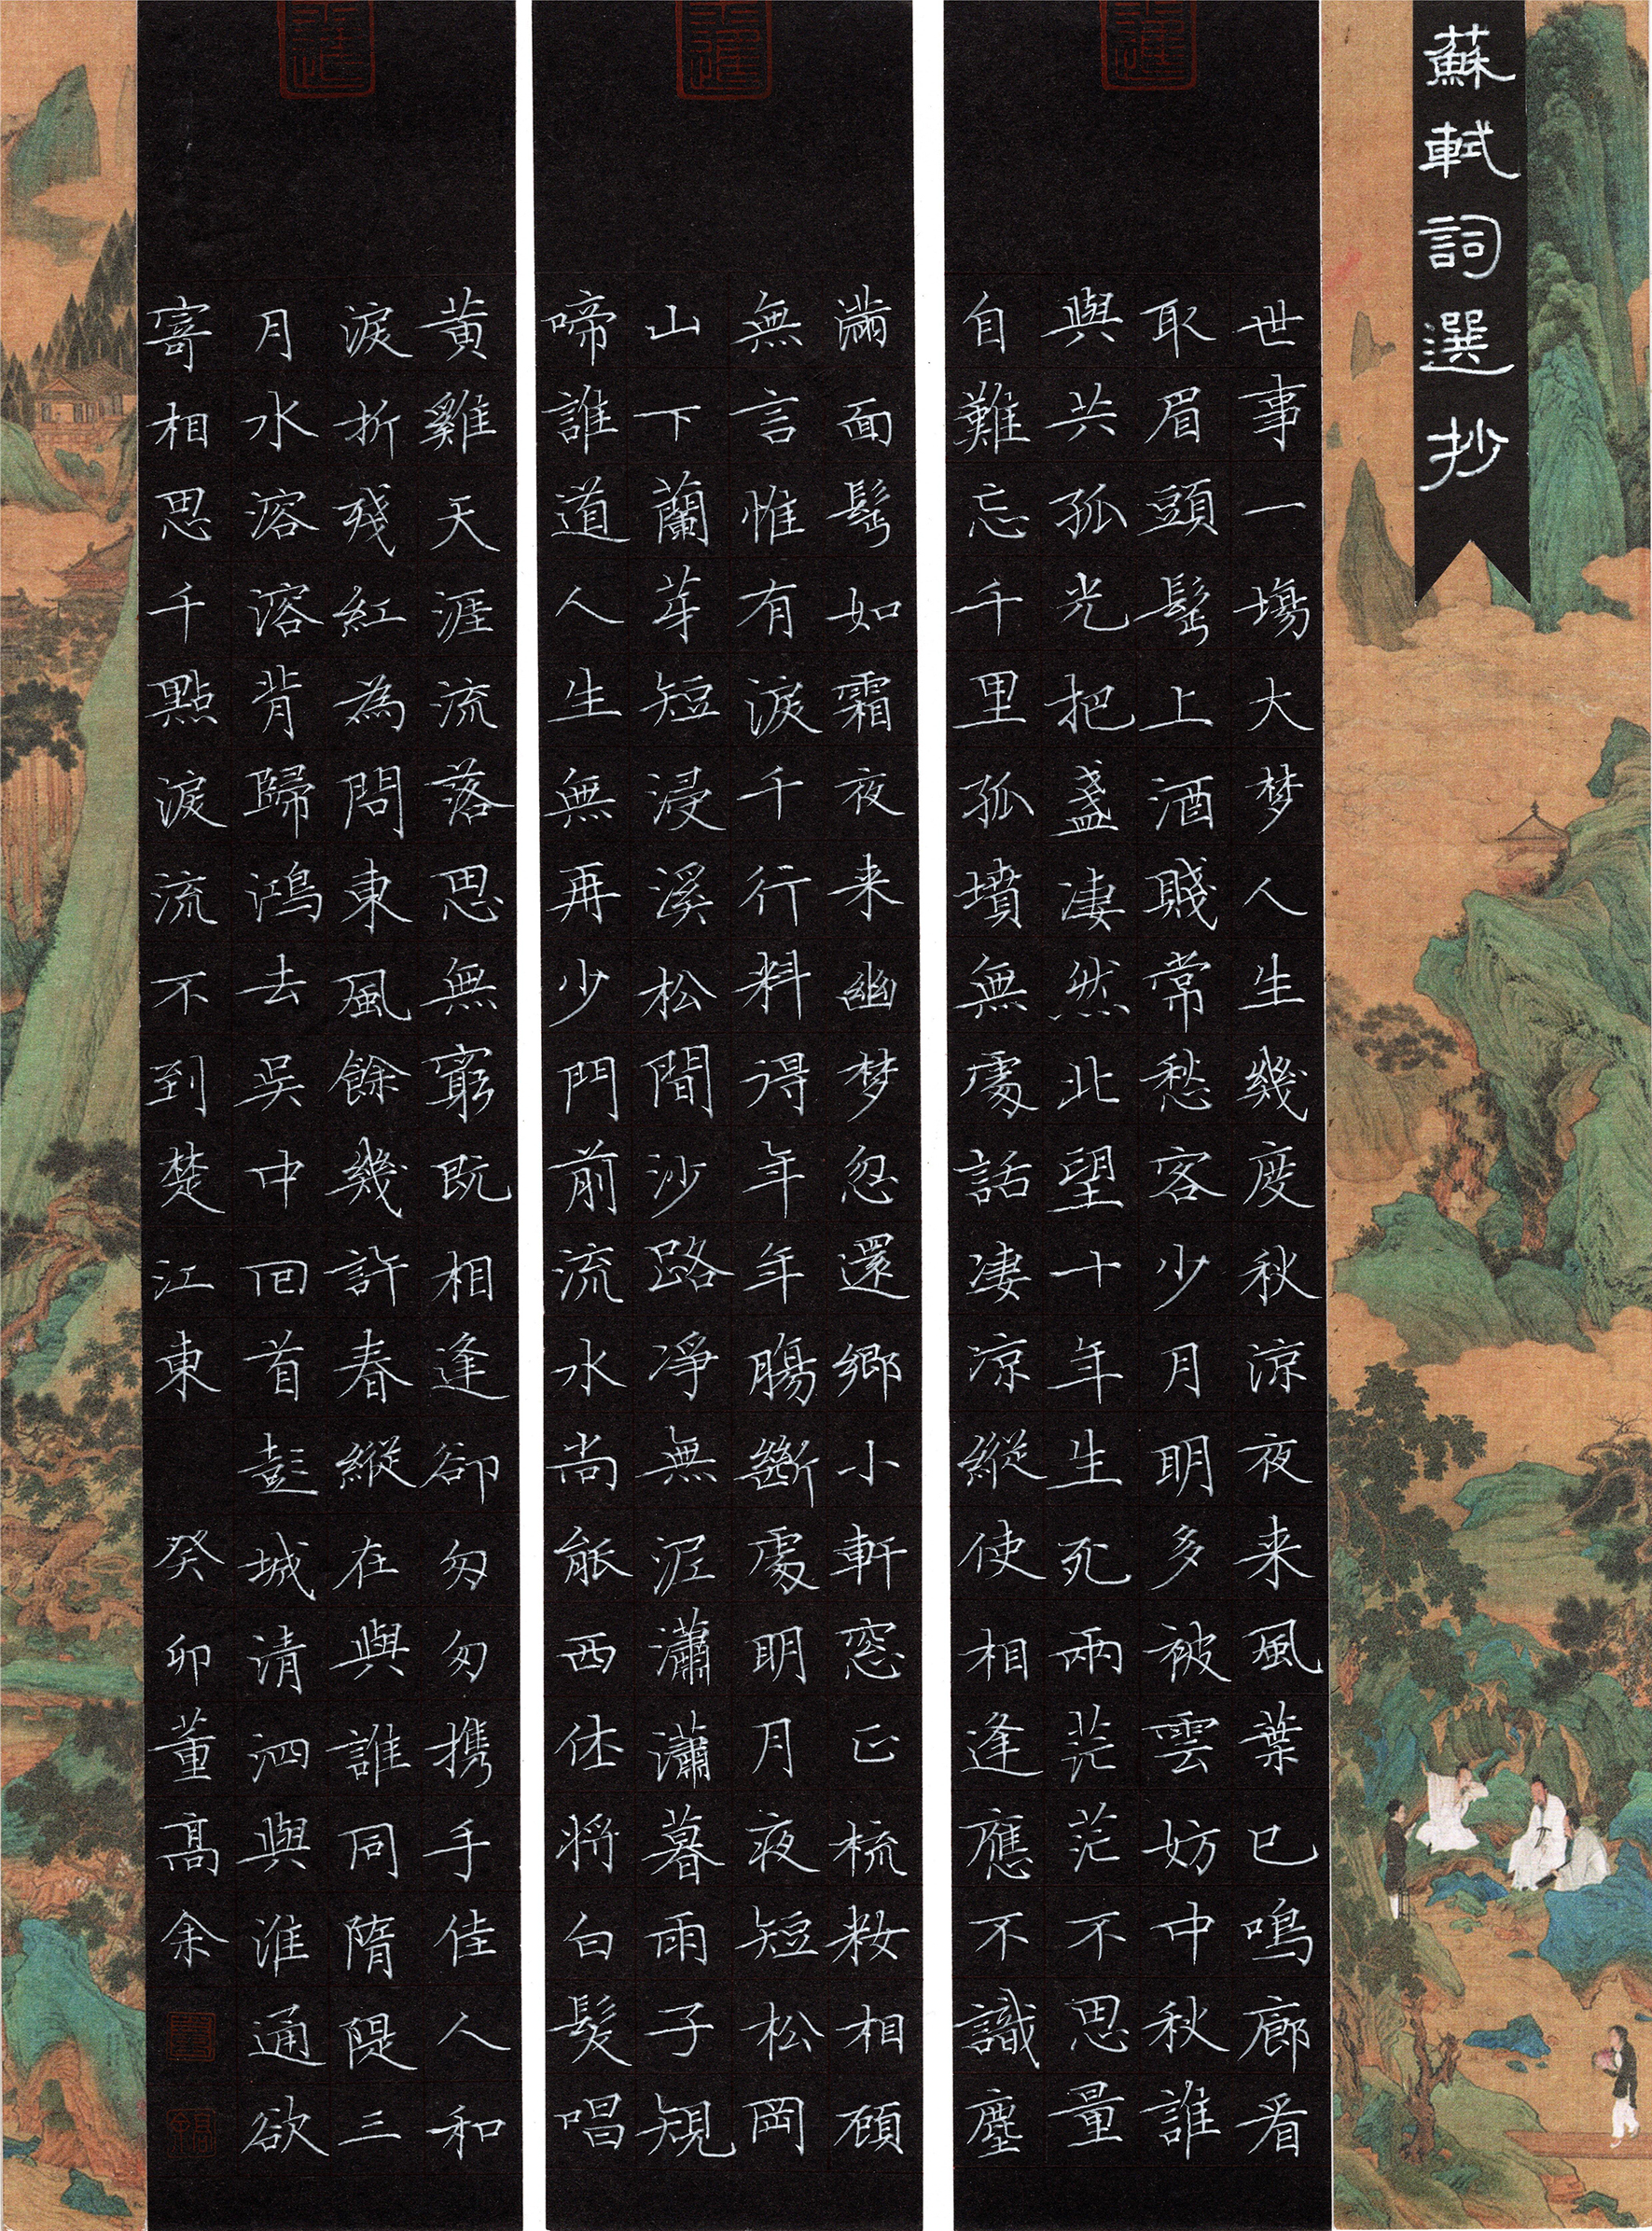 蘇軾詞選抄
世事一場大梦人生幾度秋涼夜来風葉已鳴廊看
取眉頭鬓上酒賤常愁客少月明多被雲妨中秋誰
與共孤光把盞凄然北望十年生死兩茫茫不思量
自難忘千里孤墳無處話凄涼縱使相逢應不識塵
滿面鬓如霜夜来幽梦忽還鄉小軒窓正梳籹相顧
無言惟有淚千行料得年年腸斷處明月夜短松岡
山下蘭芽短浸溪松間沙路凈無泥瀟瀟暮雨子規
啼誰道人生無再少門前流水尚能西休將白髮唱
黃雞天涯流落思無窮既相逢卻匆匆携手佳人和
淚折殘紅為問東風餘幾許春縱在與誰同隋隄三
月水溶溶背歸鴻去吳中回首彭城清泗與淮通欲
寄相思千點淚流不到楚江東 癸卯董高余